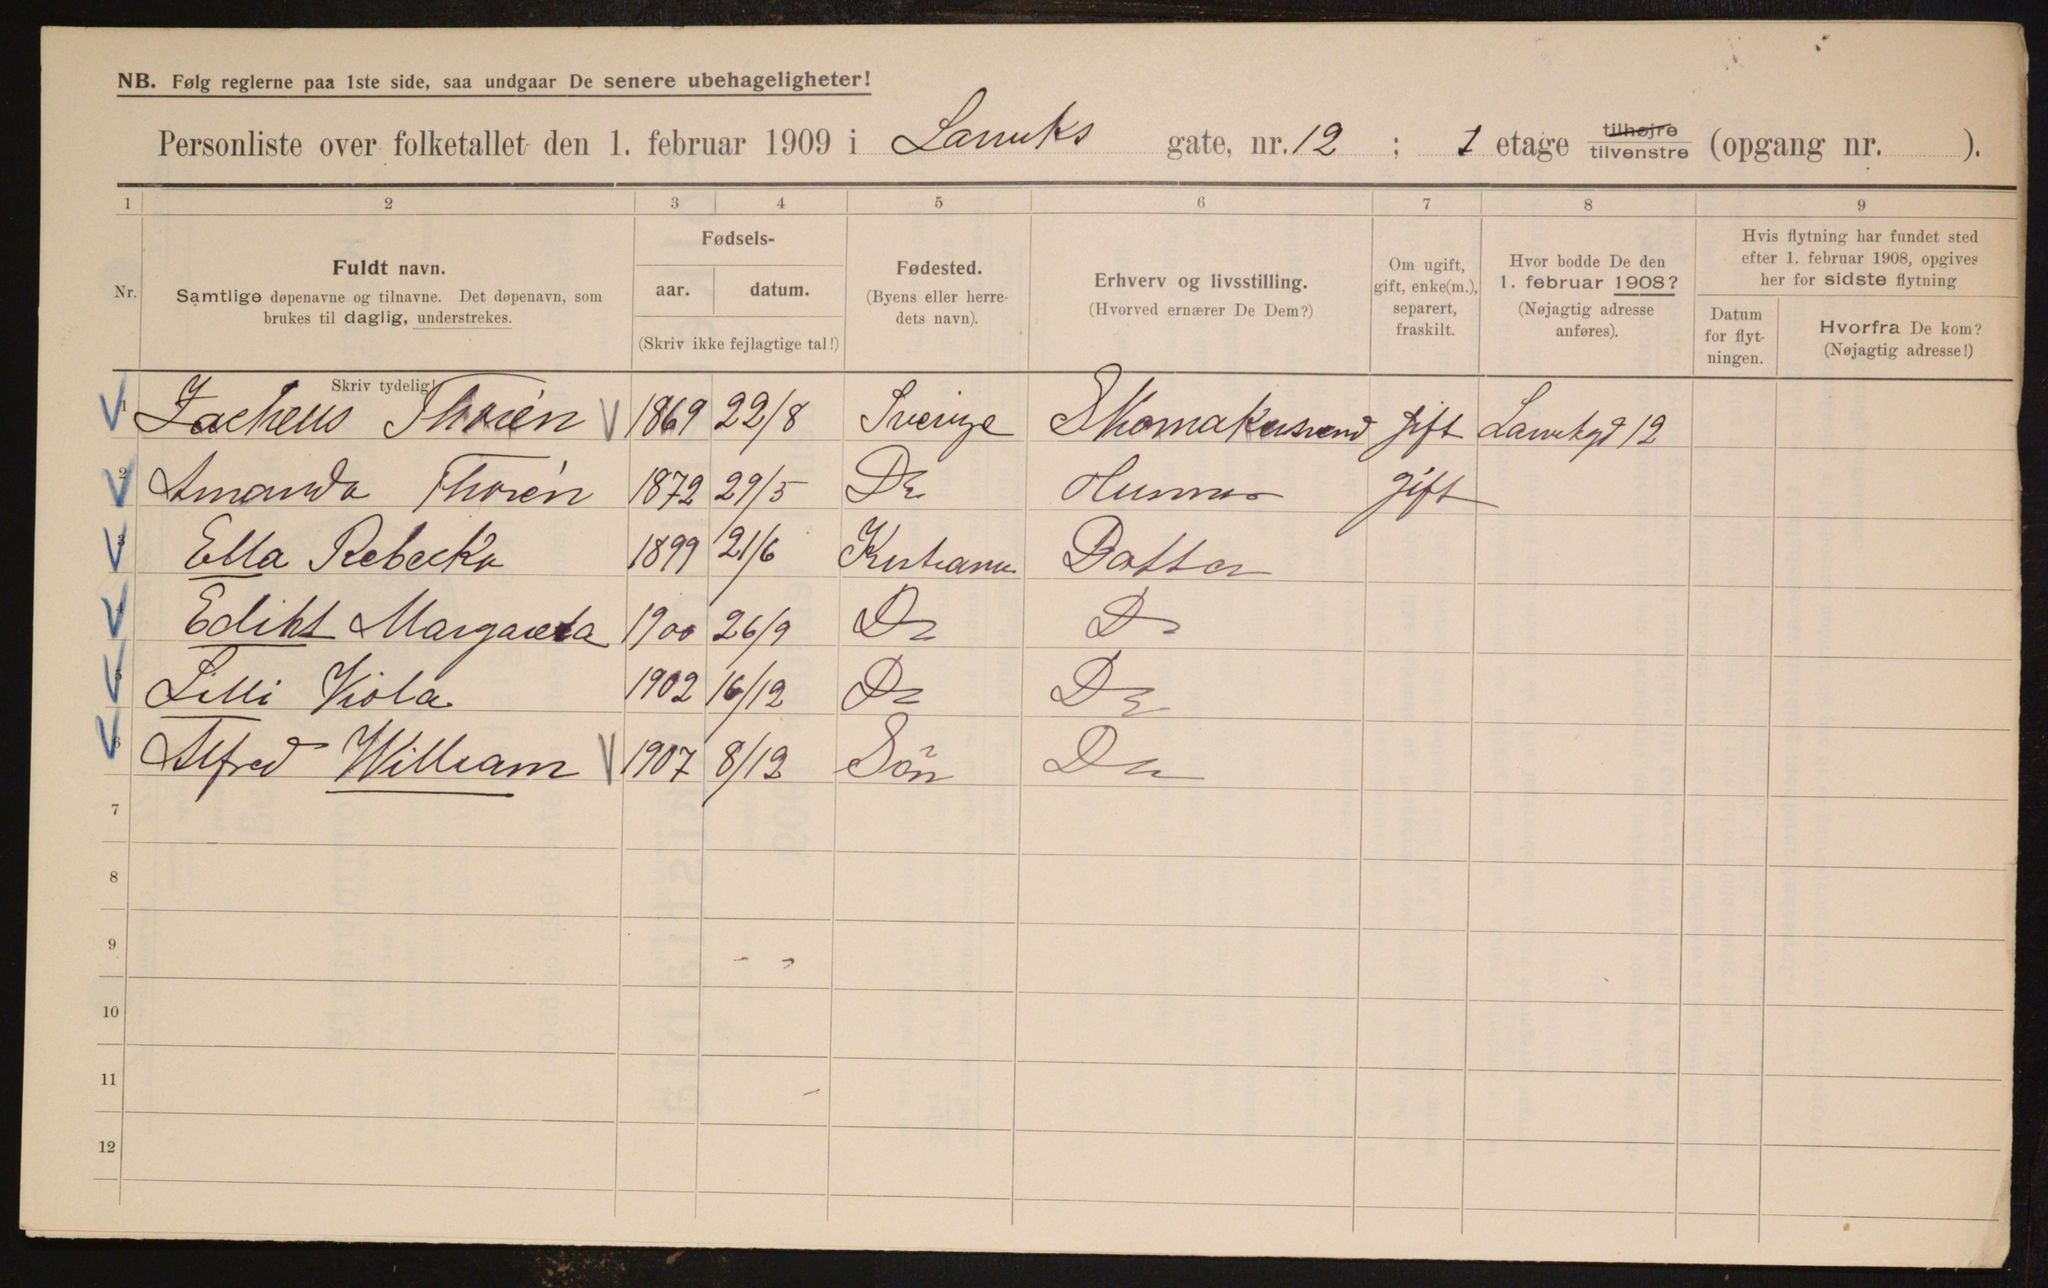 NB. Følg reglerne paa 1ste side, saa undgaar De senere ubehageligheter!
Personliste over folketallet den 1. februar 1909 i Larviks gate, nr. 12 ; 1 etage tilhøjre tilvenstre (opgang nr. ).
1 2 3 4 5 6 7 8 9
Nr.
Fuldt navn.
Samtlige døpenavne og tilnavne. Det døpenavn, som
brukes til daglig, understrekes.
Skriv tydelig!
Fødsels-
aar. datum.
(Skriv ikke fejlagtige tal!)
Fødested.
(Byens eller herre-
dets navn).
Erhverv og livsstilling.
(Hvorved ernærer De Dem?)
Om ugift,
gift, enke(m.),
separert,
fraskilt.
Hvor bodde De den
1. februar 1908?
(Nøjagtig adresse
anføres).
Hvis flytning har fundet sted
efter 1. februar 1908, opgives
her for sidste flytning
Datum
for flyt-
ningen.
Hvorfra De kom?
(Nøjagtig adresse!)
1 Zacheus Thorén 1869 22/8 Sverige Skomakersvend gift 12
2 Amanda Thorén 1872 29/5 Do Husmor gift
3 Ella Rebecka 1899 21/6 Kristiania Datter
4 Ediht Margareta 1900 26/9 Do Do
5 Lilli Viola 1902 16/12 Do Do
6 Alfred William 1907 8/12 Sön Do
7
8
9
10
11
12